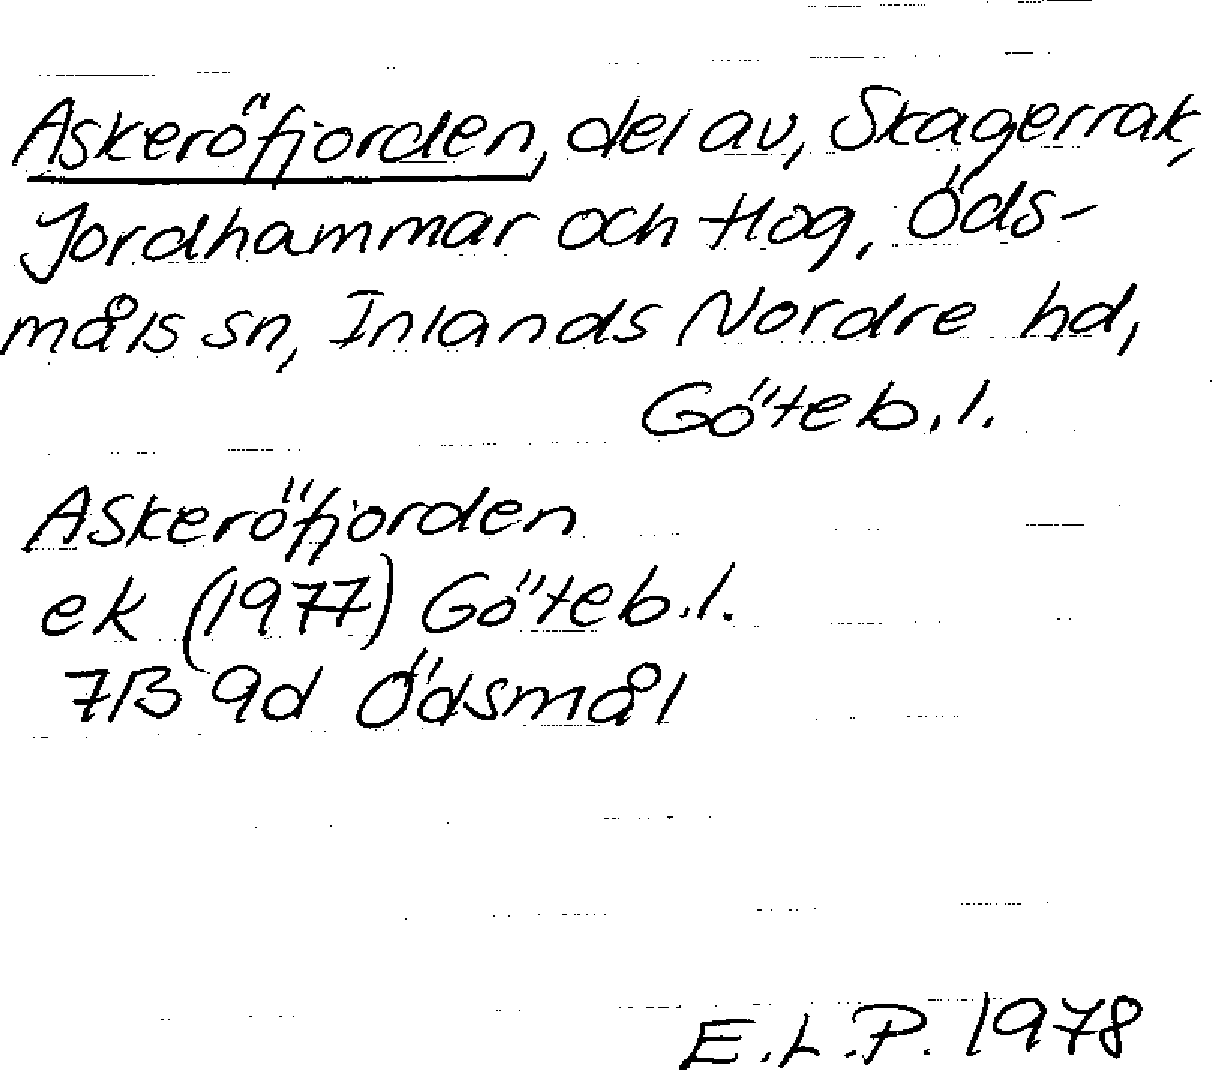 Askeröfjorden, del av, Skagerrak,
Jordhammar och Hog, Öds-
måls sn, Inlands Nordre hd,
Göteb.l.
Askeröfjorden
ek (1977) Göteb.l.
7B 9d Ödsmål
E.L.P. 1978